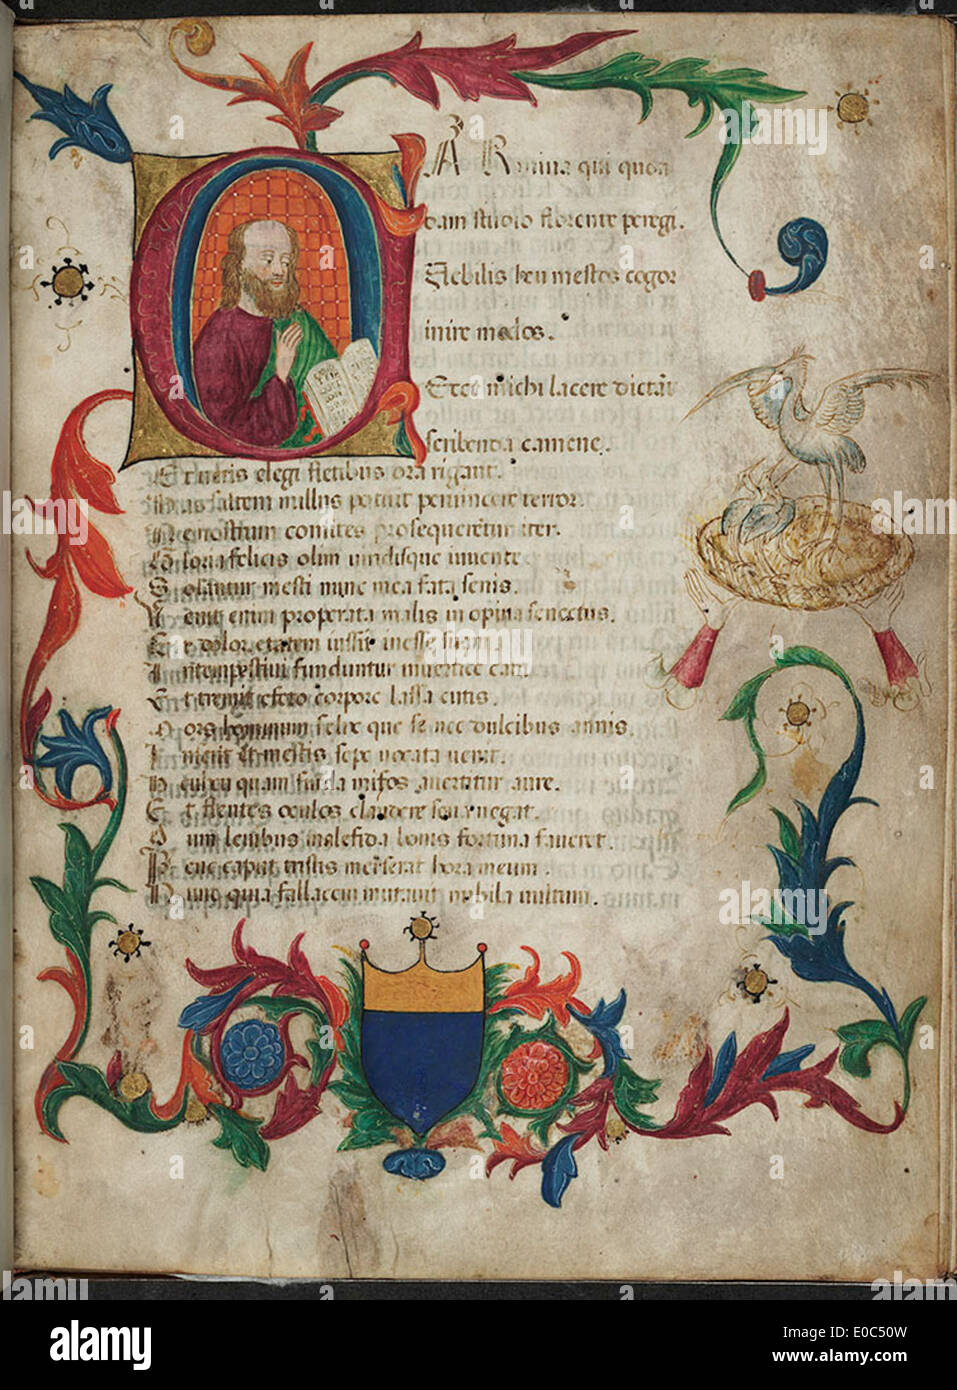 ARmina qui quon
dam studio florente peregi.
Flebilis heu mestos cogor
inire modos.
Ecce michi lacere dictant
scribenda camene.
Et ueris elegi fletibus ora rigant.
Has saltem nullus potuit peruincere terror.
Ne nostrum comites prosequerentur iter.
Gloria felicis olim uiridisque iuuente
Solantur mesti nunc mea fata senis.
Venit enim properata malis inopina senectus.
Et dolor etatem iussit inesse suam
Intempestiui funduntur uertice cani
Et tremit effeto corpore laxa cutis
Mors hominum felix que se nec dulcibus annis
Inserit et mestis sepe uocata uenit.
Heu heu quam surda miseros auertitur aure.
Et flentes oculos claudere seua negat.
Dum leuibus malefida bonis fortuna faueret.
Pene caput tristis merserat hora meum.
Nunc quia fallacem mutauit nubila uultum.
alamy
alamy
Image ID: E0C50W
www.alamy.com